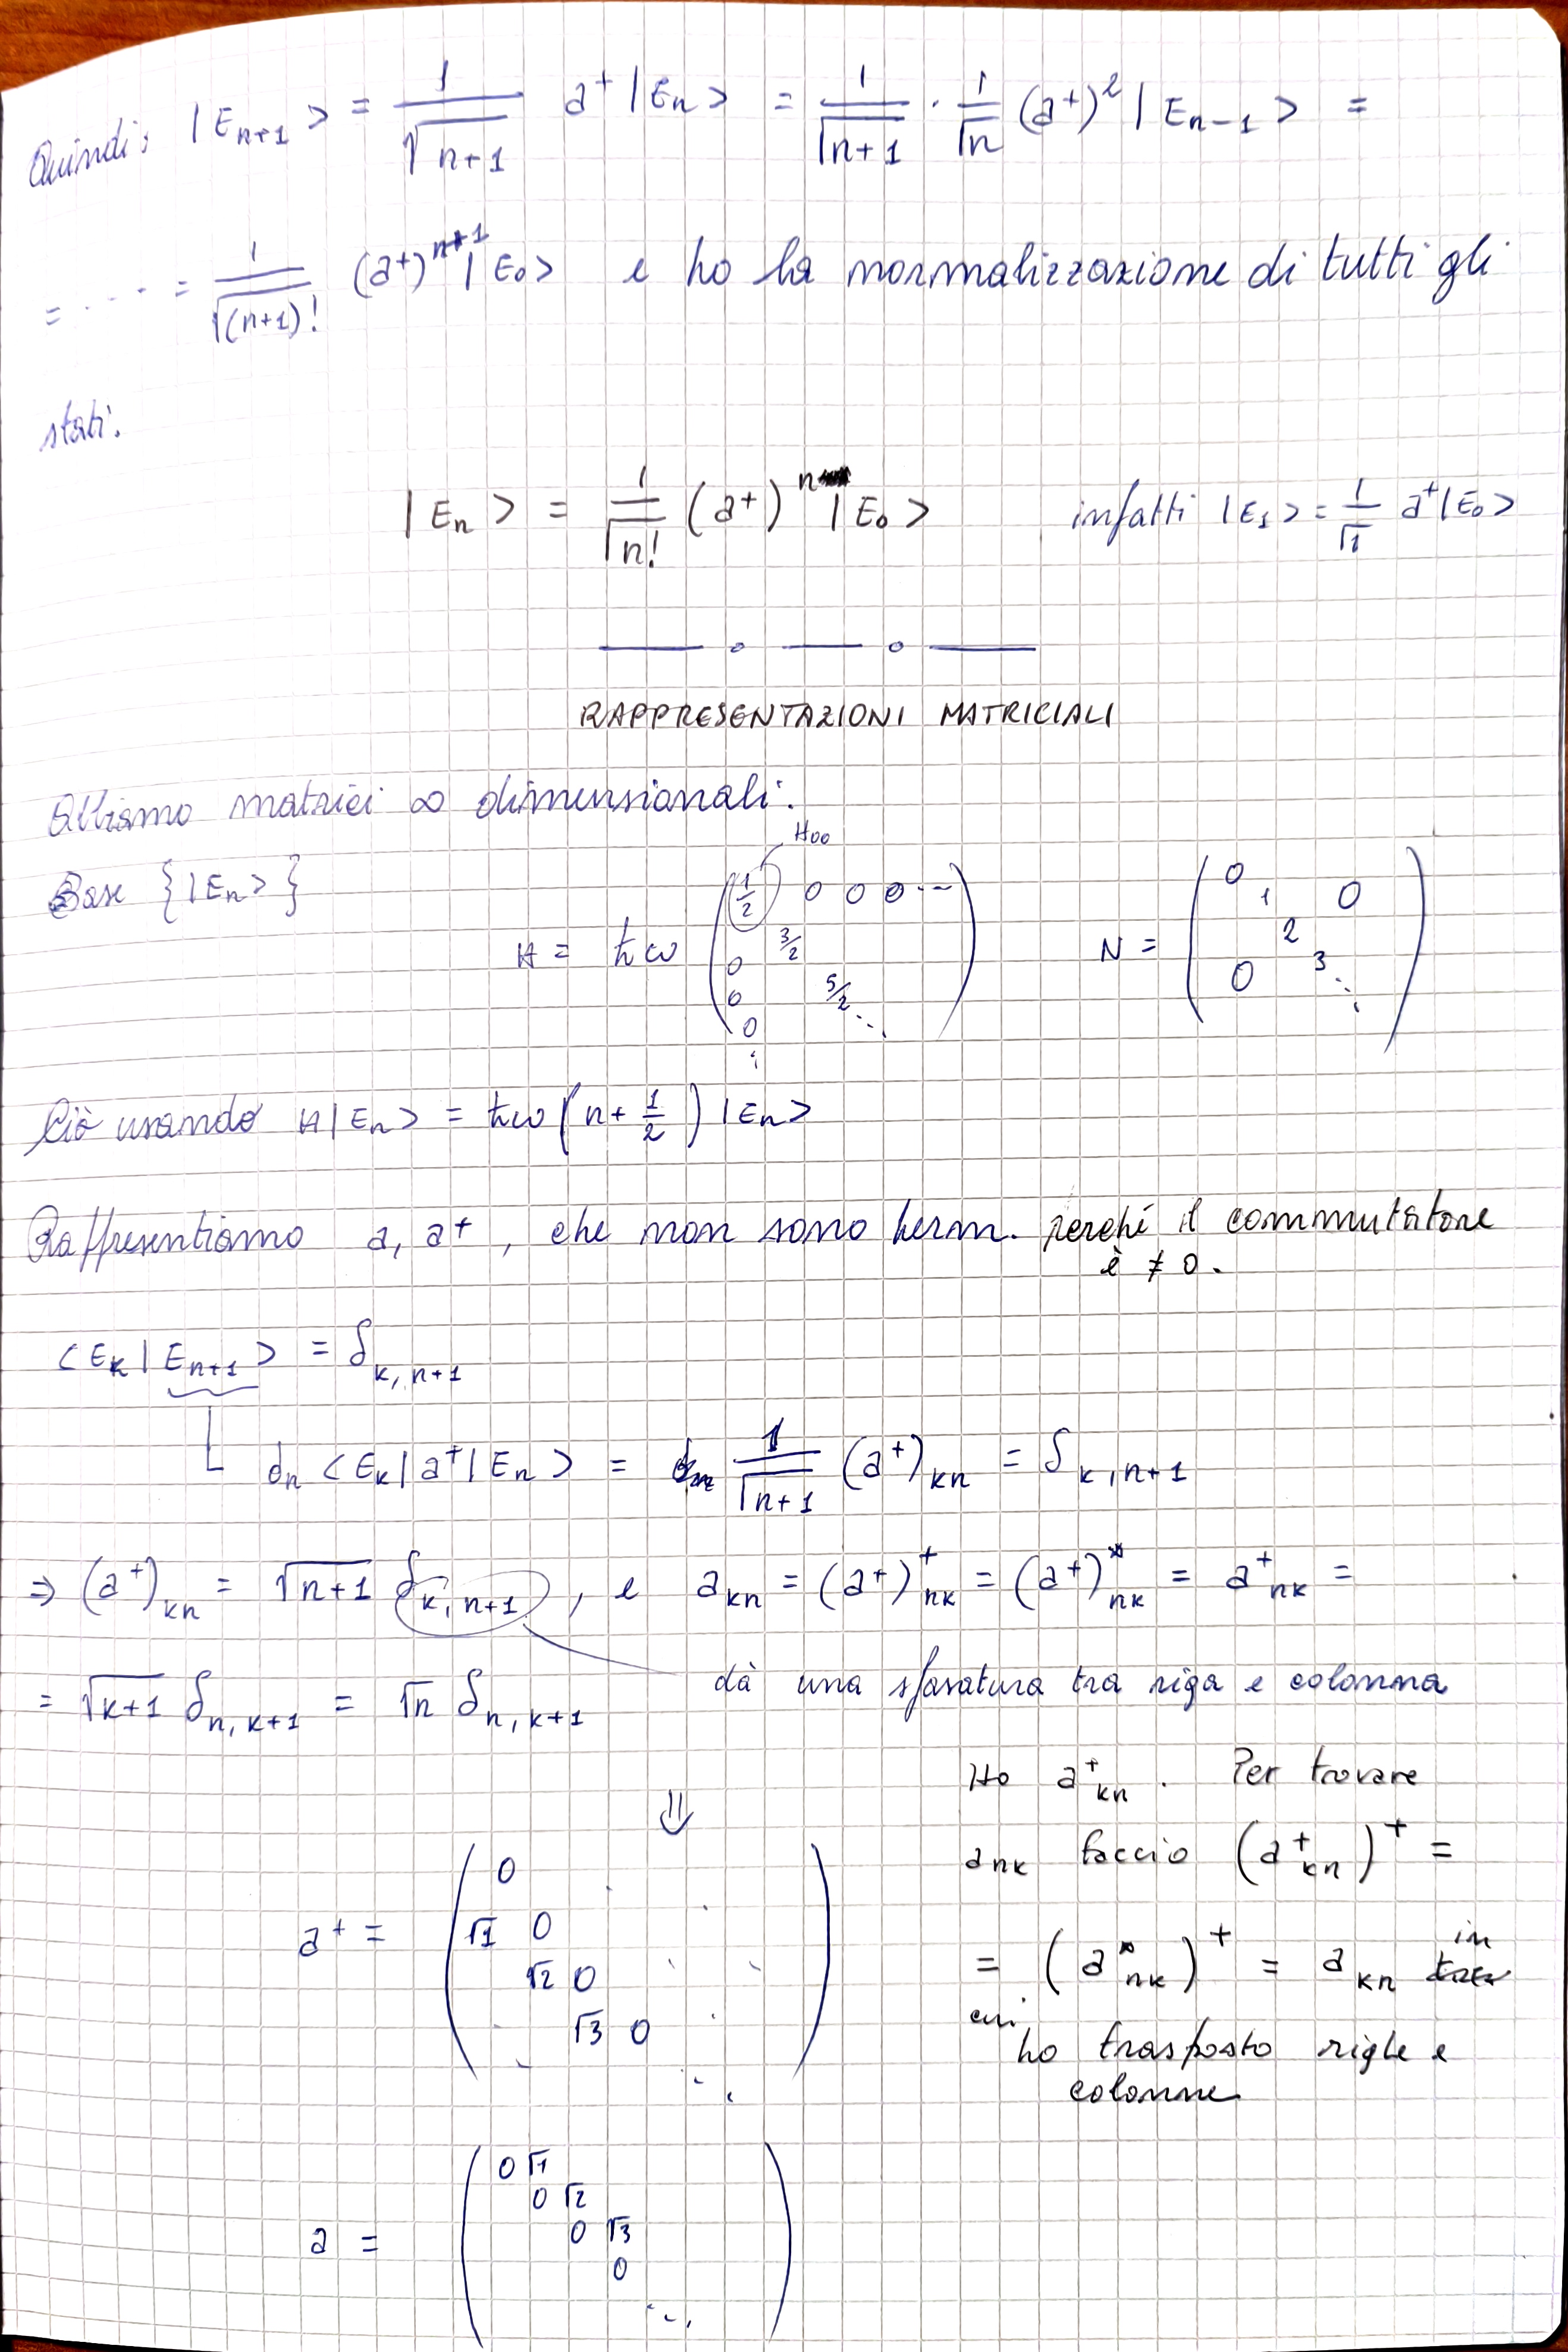 Quindi: |E_{n+1}> = \frac{1}{\sqrt{n+1}} a⁺ |E_n> = \frac{1}{\sqrt{n+1}} · \frac{1}{\sqrt{n}} (a⁺)² |E_{n-1}> =
= ---- = \frac{1}{\sqrt{(n+1)!}} (a⁺)^{n+1} |E_0> e ho la normalizzazione di tutti gli
stati.
|E_n> = \frac{1}{\sqrt{n!}} (a⁺)^n |E_0> infatti |E_1> = \frac{1}{\sqrt{1}} a⁺|E_0>
RAPPRESENTAZIONI MATRICIALI
Abbiamo matrici ∞ dimensionali.
H_{00}
Base {|E_n>}
H = ħω ( \frac{1}{2} 0 0 0 --
0 3/2
0 5/2 ⋱
0
⋮ )
N = ( 0
1 0
2
0 3
⋱ )
Ciò usando H|E_n> = ħω (n + \frac{1}{2}) |E_n>
Rappresentiamo a, a⁺, che non sono herm. perché il commutatore
è ≠ 0.
<E_k|E_{n+1}> = δ_{k,n+1}
d_n <E_k|a⁺|E_n> = \frac{1}{\sqrt{n+1}} (a⁺)_{kn} = δ_{k,n+1}
⇒ (a⁺)_{kn} = \sqrt{n+1} δ_{k,n+1}, e a_{kn} = (a⁺)⁺_{nk} = (a⁺)^*_{nk} = a⁺_{nk} =
= \sqrt{k+1} δ_{n,k+1} = \sqrt{n} δ_{n,k+1}
dà una sfasatura tra riga e colonna
⇓
a⁺ = ( 0
√1 0
√2 0
√3 0
⋱ )
a = ( 0 √1
0 √2
0 √3
0
⋱ )
Ho a⁺_{kn}. Per trovare
a_{nk} faccio (a⁺_{kn})⁺ =
= (a^*_{nk})⁺ = a_{kn} in
cui ho trasposto righe e
colonne